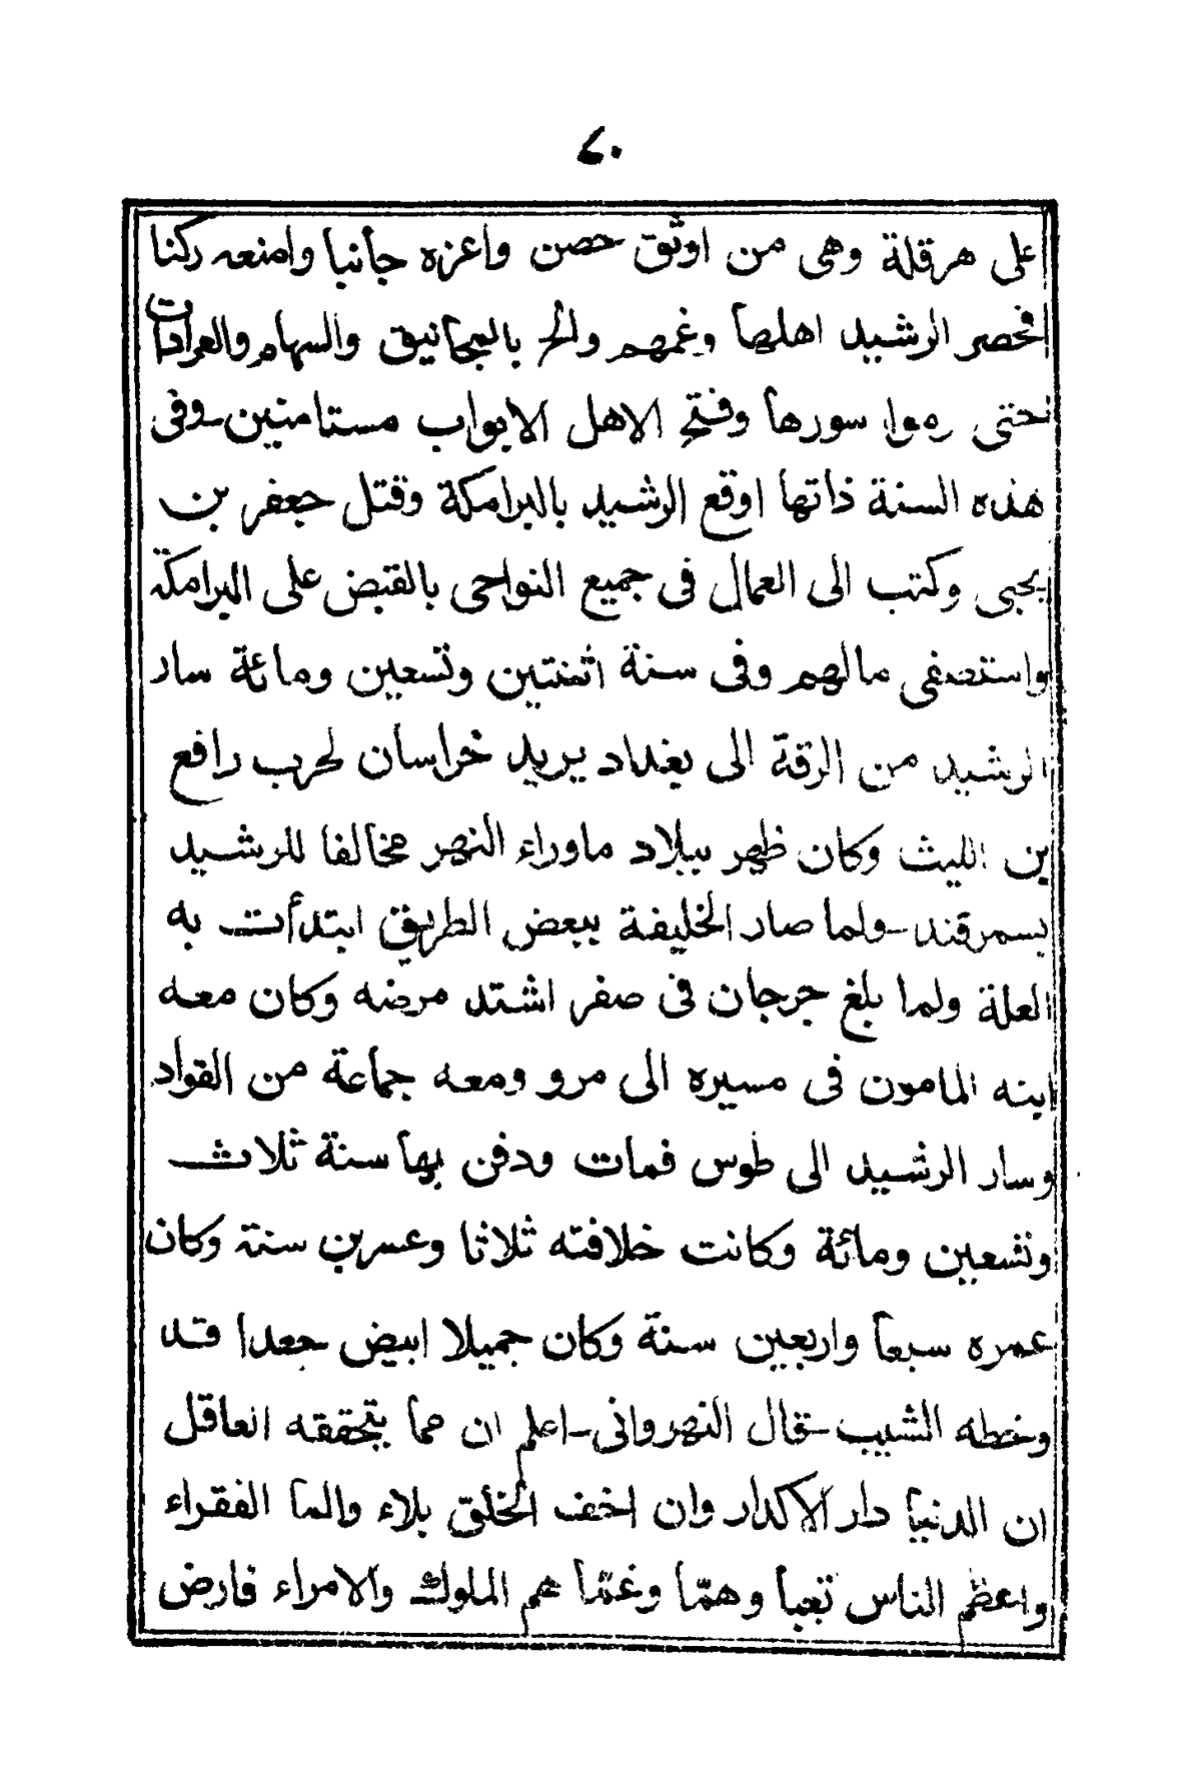 ٤٠
على هرقلة وهى من اوثق حصن واعزه جانبا وامنعه ركنا
فحصر الرشيد اهلها وغمهم والح بالمجانيق والسهام والعرادات
حتى رموا سورها وفتح الاهل الابواب مستامنين - وفى
هذه السنة ذاتها اوقع الرشيد بالبرامكة وقتل جعفر بن
يحيى وكتب الى العمال فى جميع النواحى بالقبض على البرامكة
واستصفى مالهم وفى سنة اثنتين وتسعين ومائة سار
الرشيد من الرقة الى بغداد يريد خراسان لحرب رافع
بن الليث وكان ظهر ببلاد ماوراء النهر مخالفا للرشيد
بسمرقند - ولما صار الخليفة ببعض الطريق ابتدأت به
العلة ولما بلغ جرجان فى صفر اشتد مرضه وكان معه
ابنه المامون فى مسيره الى مرو ومعه جماعة من القواد
وسار الرشيد الى طوس فمات ودفن بها سنة ثلاث
وتسعين ومائة وكانت خلافته ثلاثا وعسرين سنة وكان
عمره سبعا واربعين سنة وكان جميلا ابيض جعدا قد
وخطه الشيب - قال النهروانى - اعلم ان مما يتحققه العاقل
ان الدنيا دار الاكدار وان اخف الخلق بلاء والما الفقراء
واعظم الناس تعبا وهمّا وغمّا هم الملوك والامراء فارض